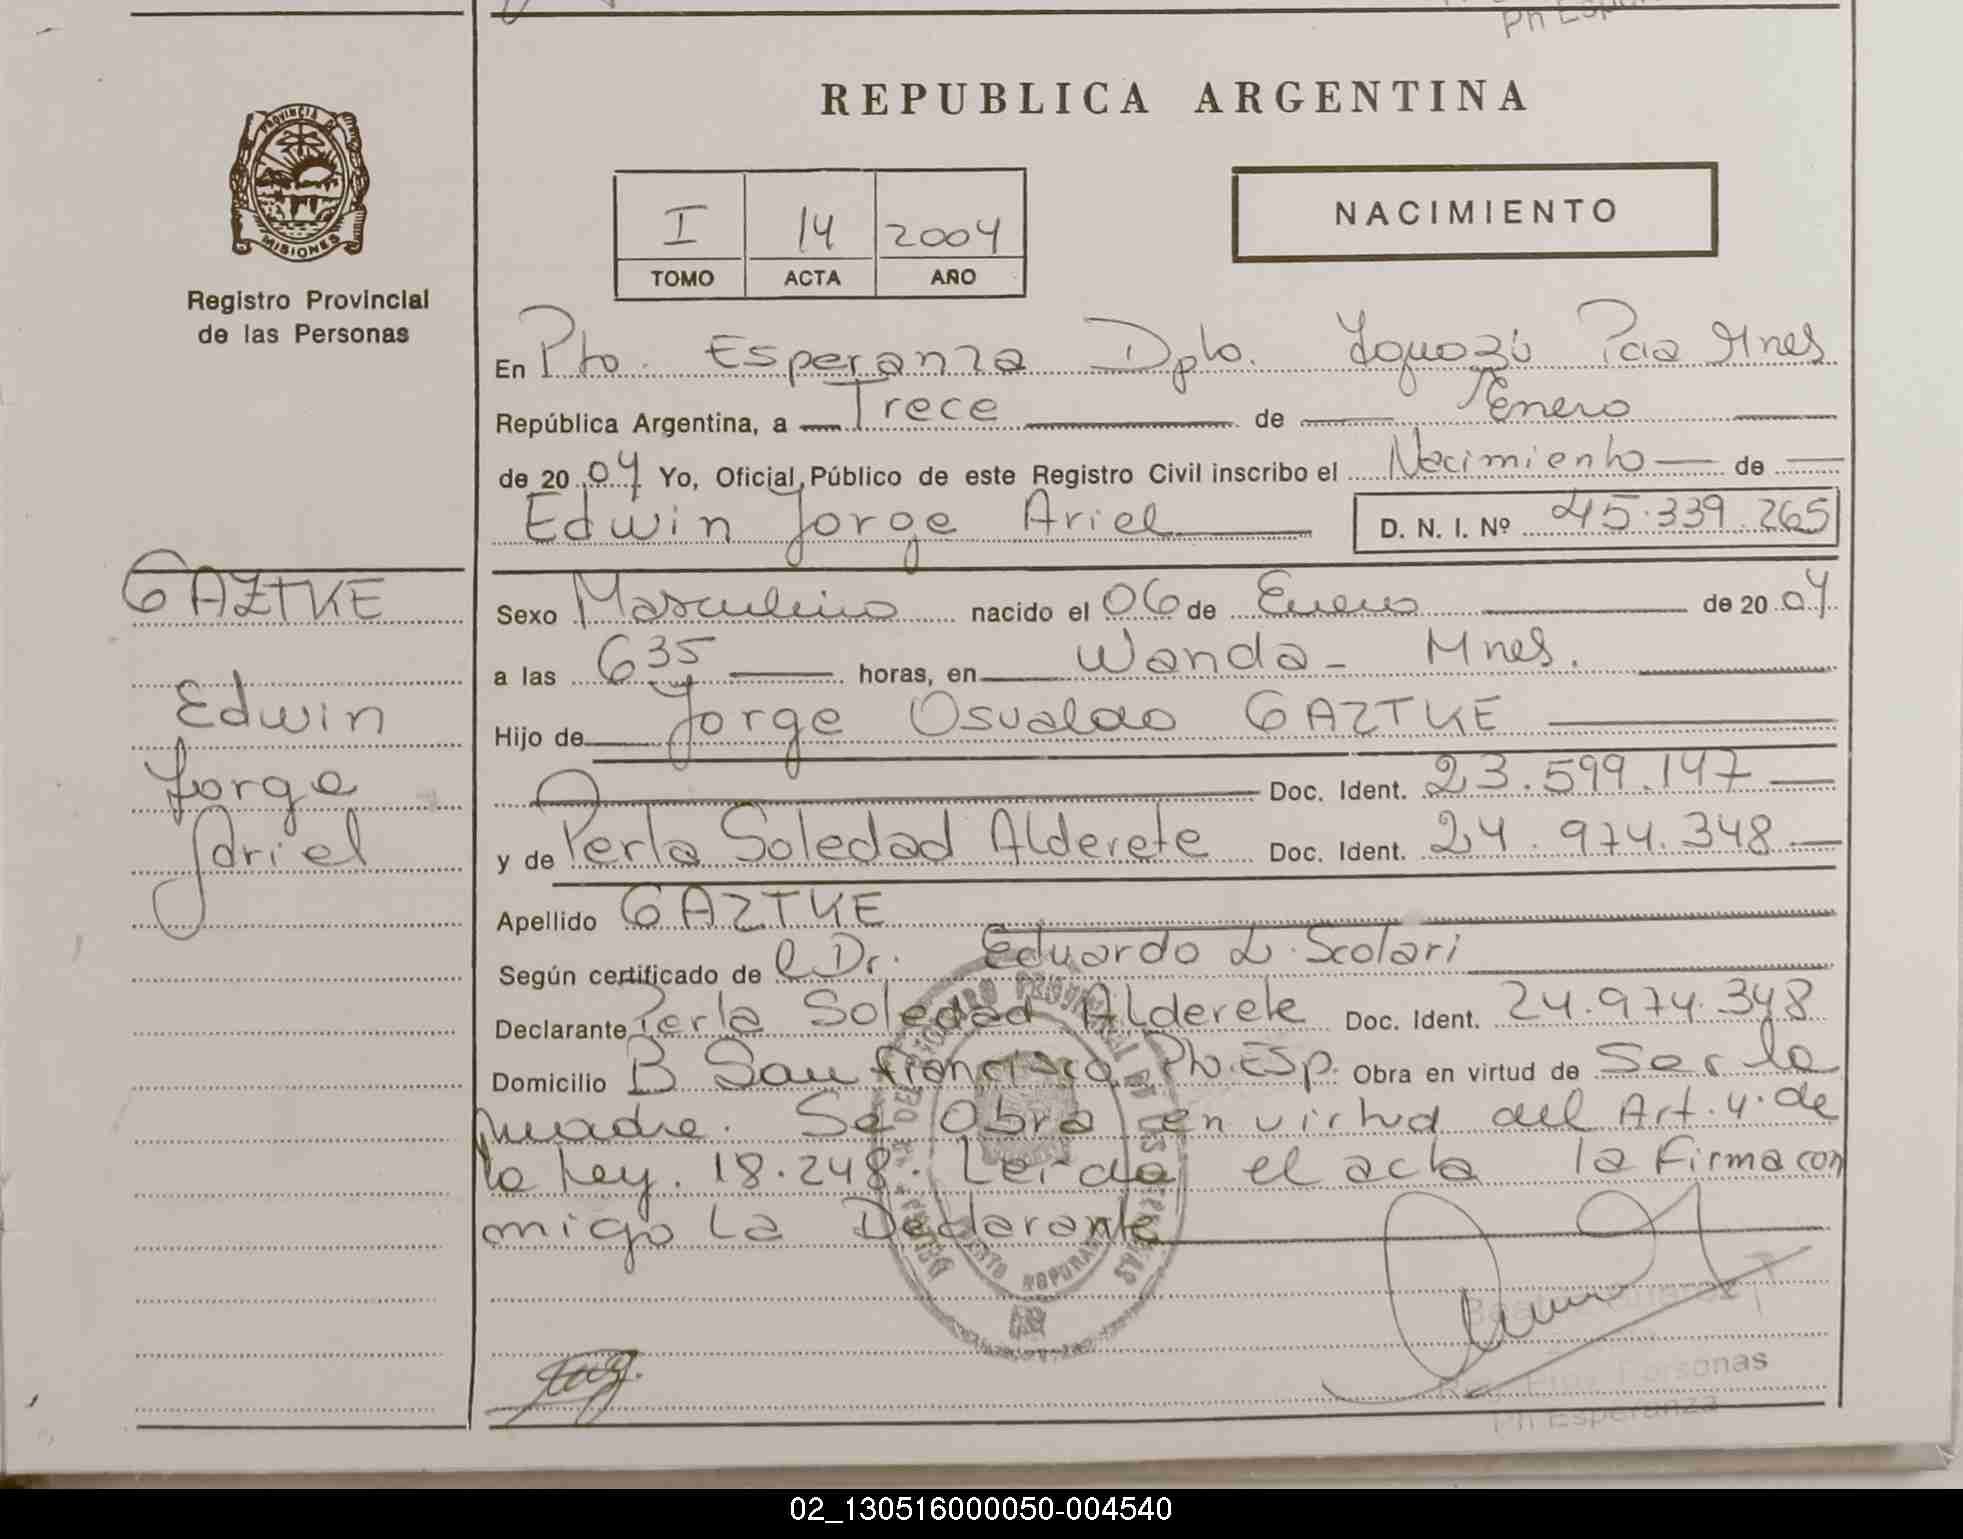 Ph Esper
REPUBLICA ARGENTINA
PROVINCIA DE
MISIONES
Registro Provincial
de las Personas
I 14 2004
TOMO ACTA AÑO
NACIMIENTO
En Pto. Esperanza Dpto. Iguazú Pcia Mnes
República Argentina, a Trece de Enero
de 2004 Yo, Oficial Público de este Registro Civil inscribo el Nacimiento de
Edwin Jorge Ariel D. N. I. Nº 45.339.265
GAZTKE
Edwin
Jorge
Ariel
Sexo Masculino nacido el 06 de Enero de 2004
a las 6 35 horas, en Wanda - Mnes.
Hijo de Jorge Osvaldo GAZTKE
Doc. Ident. 23.599.147
y de Perla Soledad Alderete Doc. Ident. 24.974.348
Apellido GAZTKE
Según certificado de l Dr. Eduardo L. Scolari
Declarante Perla Soledad Alderete Doc. Ident. 24.974.348
Domicilio B San Francisco Pto. Esp. Obra en virtud de Ser la
madre. Se Obra en virtud del Art. 4. de
la Ley. 18.248. Leida el acta la firma con
migo La Declarante
Personas
Ph Esperanza
02_130516000050-004540